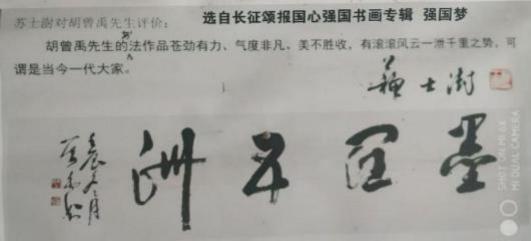 苏士澍对胡曾禹先生评价:
选自长征颂报国心强国书画专辑 强国梦
胡曾禹先生的书法作品苍劲有力、气度非凡、美不胜收,有滚滚风云一泄千重之势,可
谓是当今一代大家。
蘇士澍
墨五洲
壬辰年
SHOT ON MI 6X
MI DUAL CAMERA